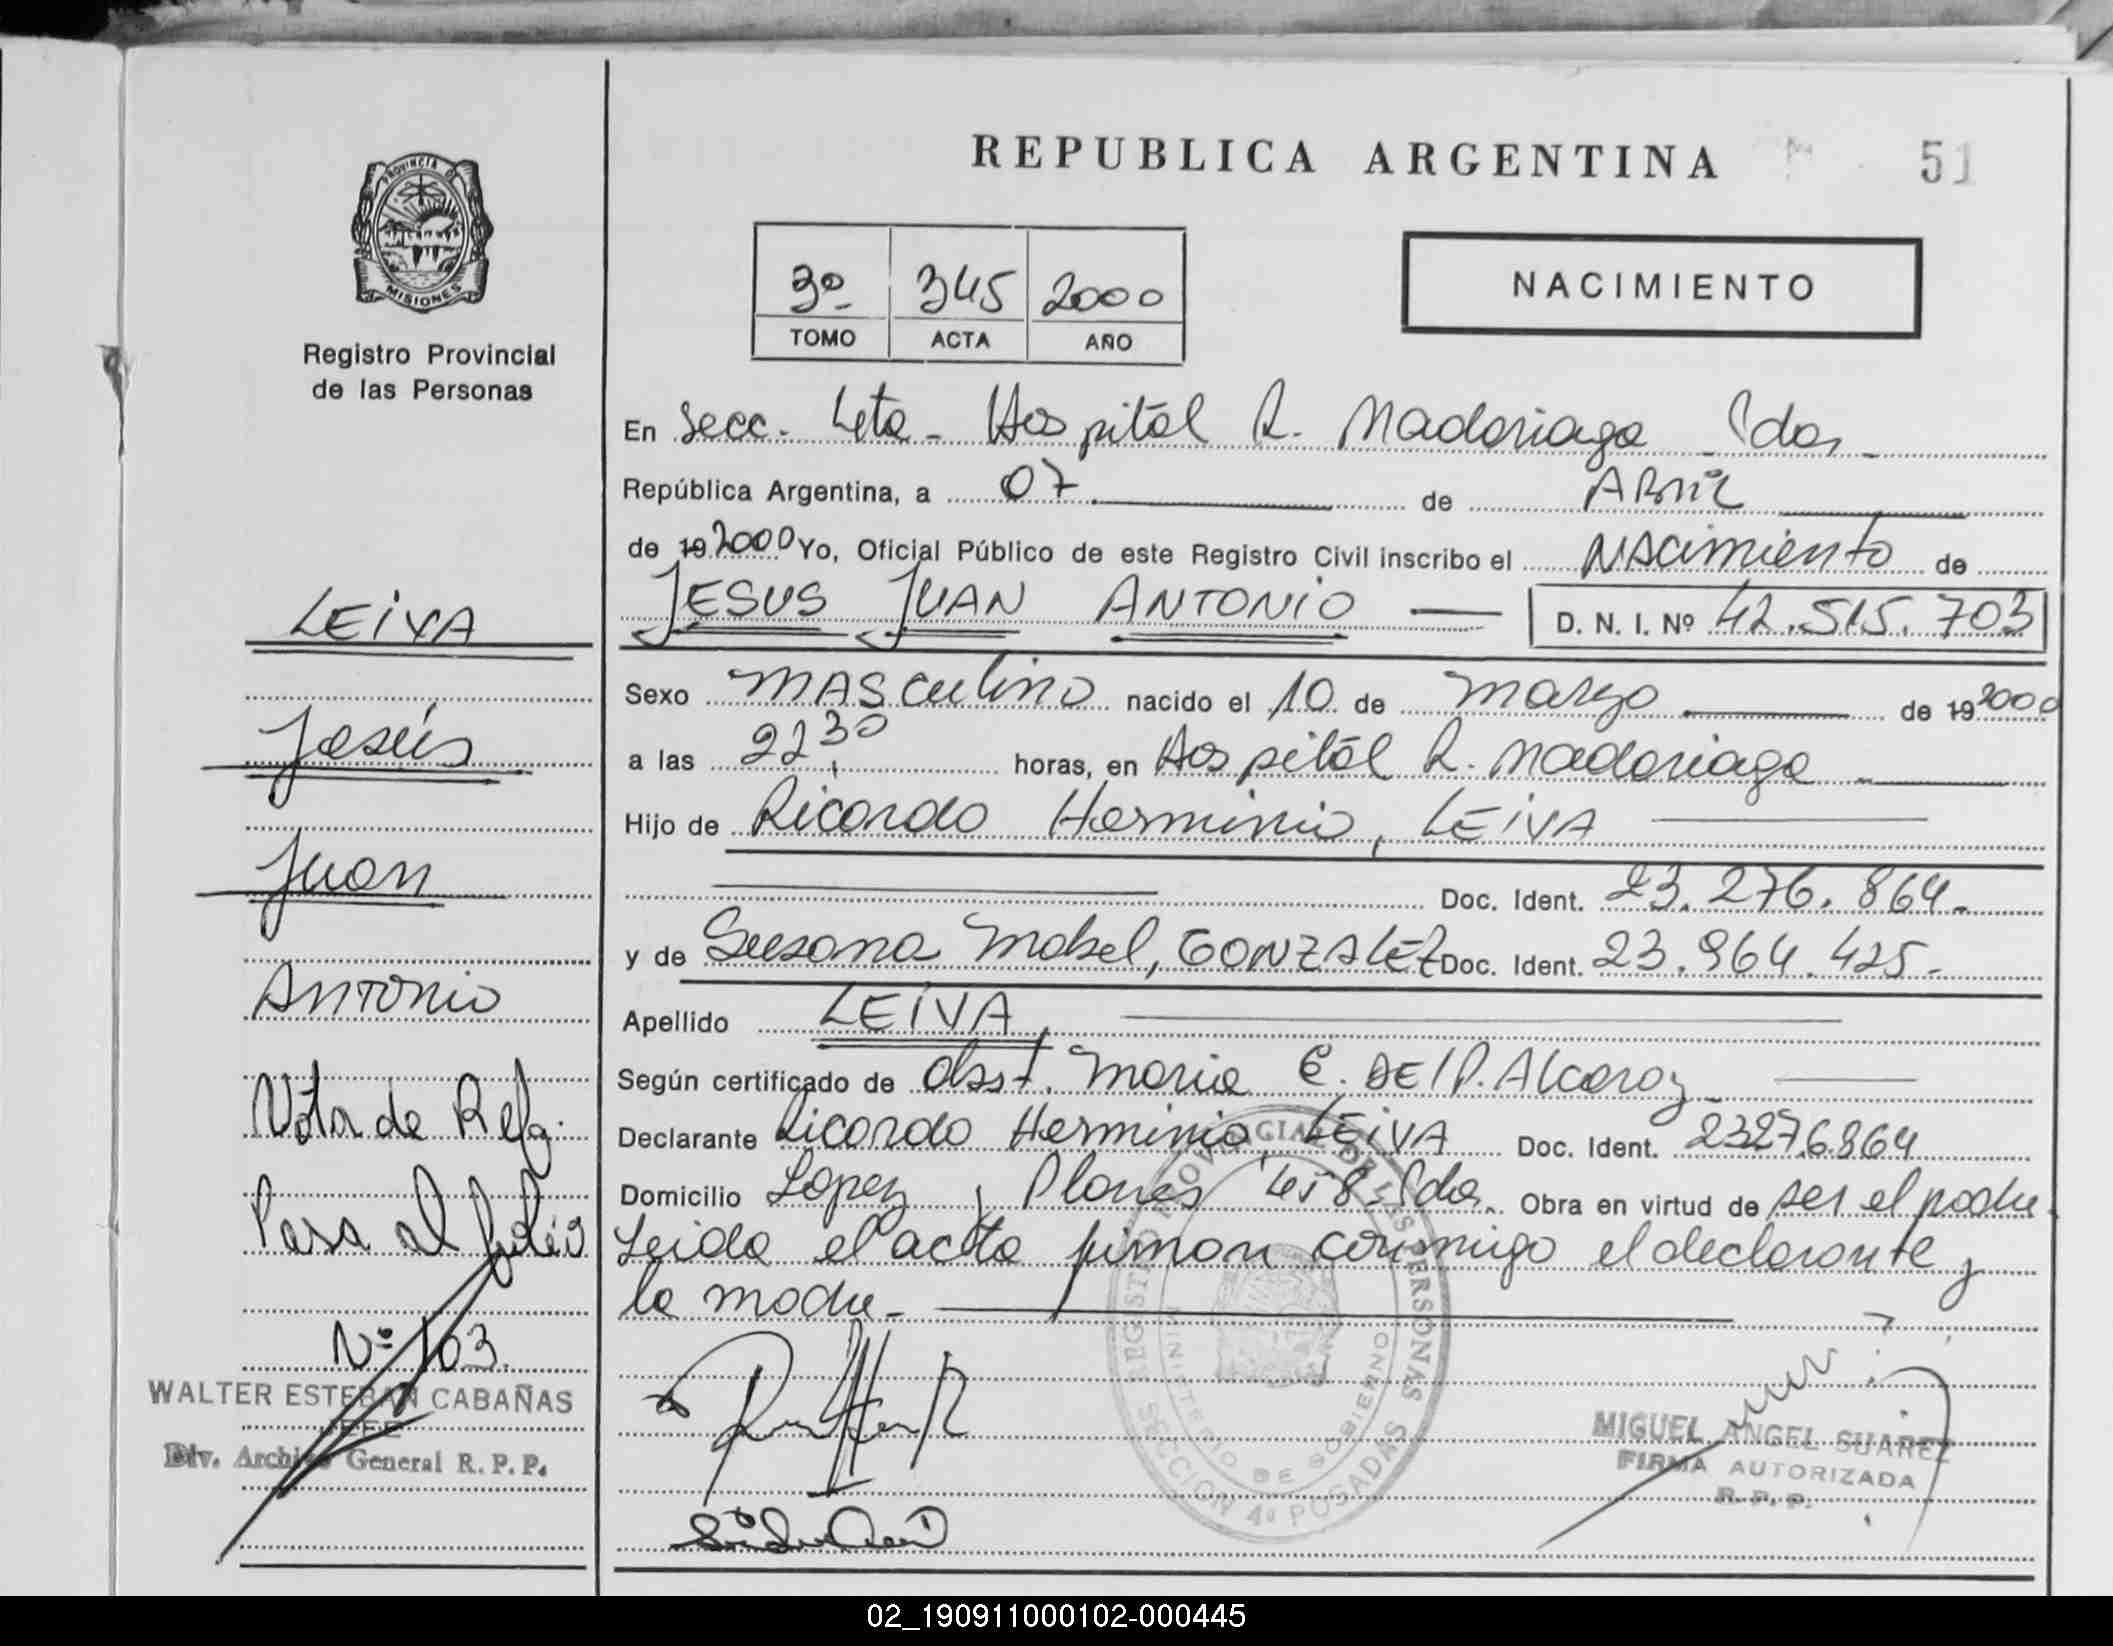 REPUBLICA ARGENTINA
51
PROVINCIA DE
MISIONES
Registro Provincial
de las Personas
3º 345 2000
TOMO ACTA AÑO
NACIMIENTO
En Secc. 4ta - Hospital R. Madariaga Pdas -
República Argentina, a 07 de ABRIL
de 19 2000 Yo, Oficial Público de este Registro Civil inscribo el NACIMIENTO de
JESUS JUAN ANTONIO D. N. I. Nº 42.515.703
Sexo MASCULINO nacido el 10 de Marzo de 19 2000
a las 22,30 horas, en Hospital R. Madariaga -
Hijo de Ricardo Herminio, LEIVA
Doc. Ident. 23.276.864.-
y de Susana Mabel, GONZALEZ Doc. Ident. 23.964.425.-
Apellido LEIVA,
Según certificado de Obst. Maria E. DE P. Alcaraz
Declarante Ricardo Herminio, LEIVA Doc. Ident. 23276.864
Domicilio Lopez y Planes 458 Pdas. Obra en virtud de ser el padre.
Leida el acta firman conmigo el declarante y
la madre -
LEIVA
Jesús
Juan
ANTONIO
Nota de Refg.
Pasa al folio
Nº 103.
WALTER ESTEBAN CABAÑAS
JEFE
Div. Archivo General R. P. P.
REGISTRO PROVINCIAL DE LAS PERSONAS
MINISTERIO DE GOBIERNO
SECCION 4ª POSADAS
MIGUEL ANGEL SUAREZ
FIRMA AUTORIZADA
R. P. P.
02_190911000102-000445